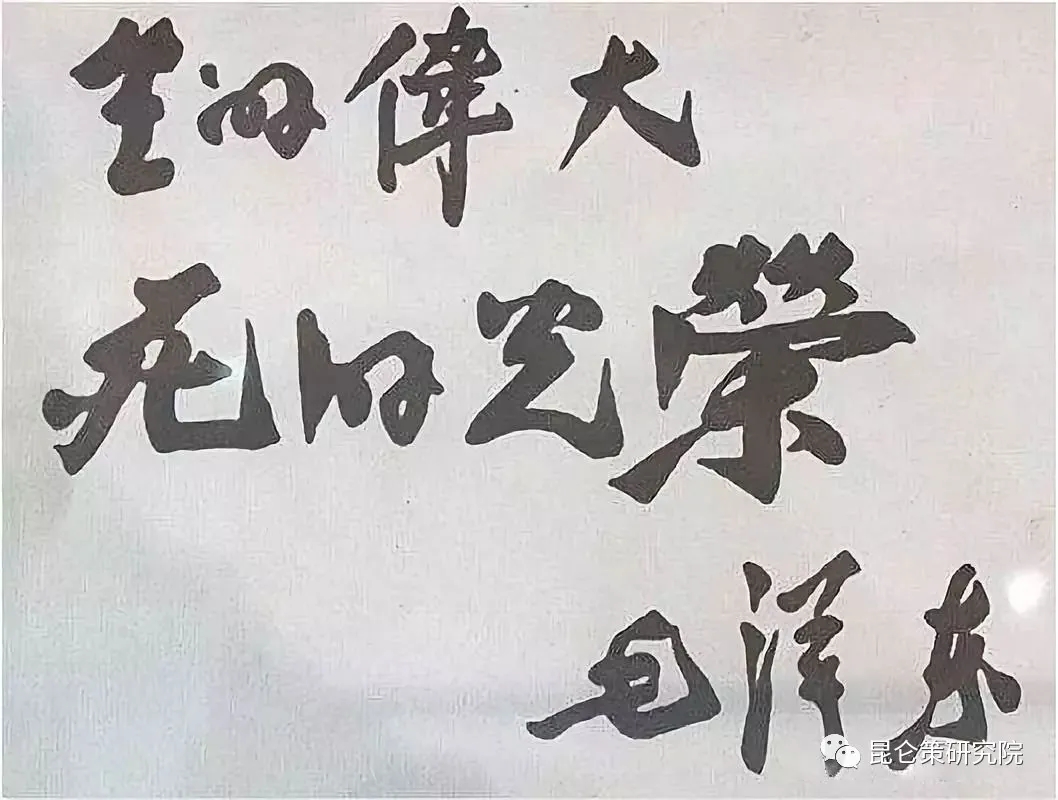 生的偉大
死的光榮
毛泽东
昆仑策研究院